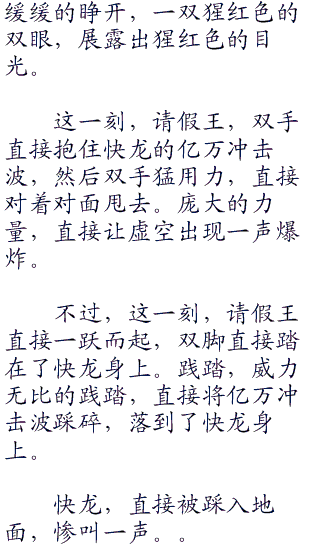 缓缓的睁开，一双猩红色的
双眼，展露出猩红色的目
光。
这一刻，请假王，双手
直接抱住快龙的亿万冲击
波，然后双手猛用力，直接
对着对面甩去。庞大的力
量，直接让虚空出现一声爆
炸。
不过，这一刻，请假王
直接一跃而起，双脚直接踏
在了快龙身上。践踏，威力
无比的践踏，直接将亿万冲
击波踩碎，落到了快龙身
上。
快龙，直接被踩入地
面，惨叫一声。。